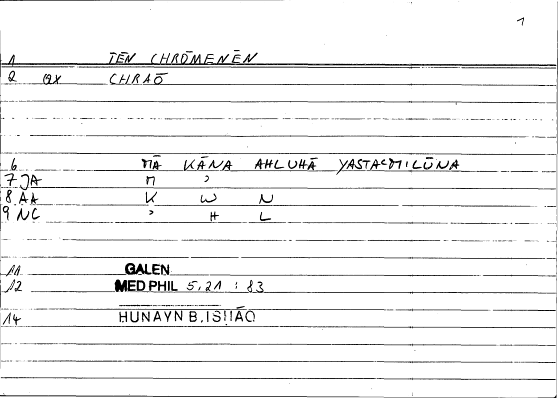 1
1 TĒN CHRŌMENĒN
2 QX CHRAŌ
6 MĀ KĀNA AHLUHĀ YASTAʿMILŪNA
7 JA M ʾ
8 AA K W N
9 NC ʾ H L
11 GALEN
12 MED PHIL 5,21 : 83
14 HUNAYN B. ISHĀQ